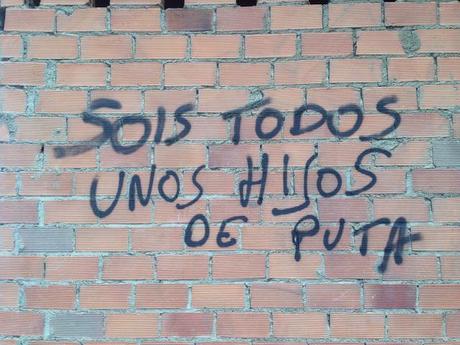 SOIS TODOS
UNOS HIJOS
DE PUTA